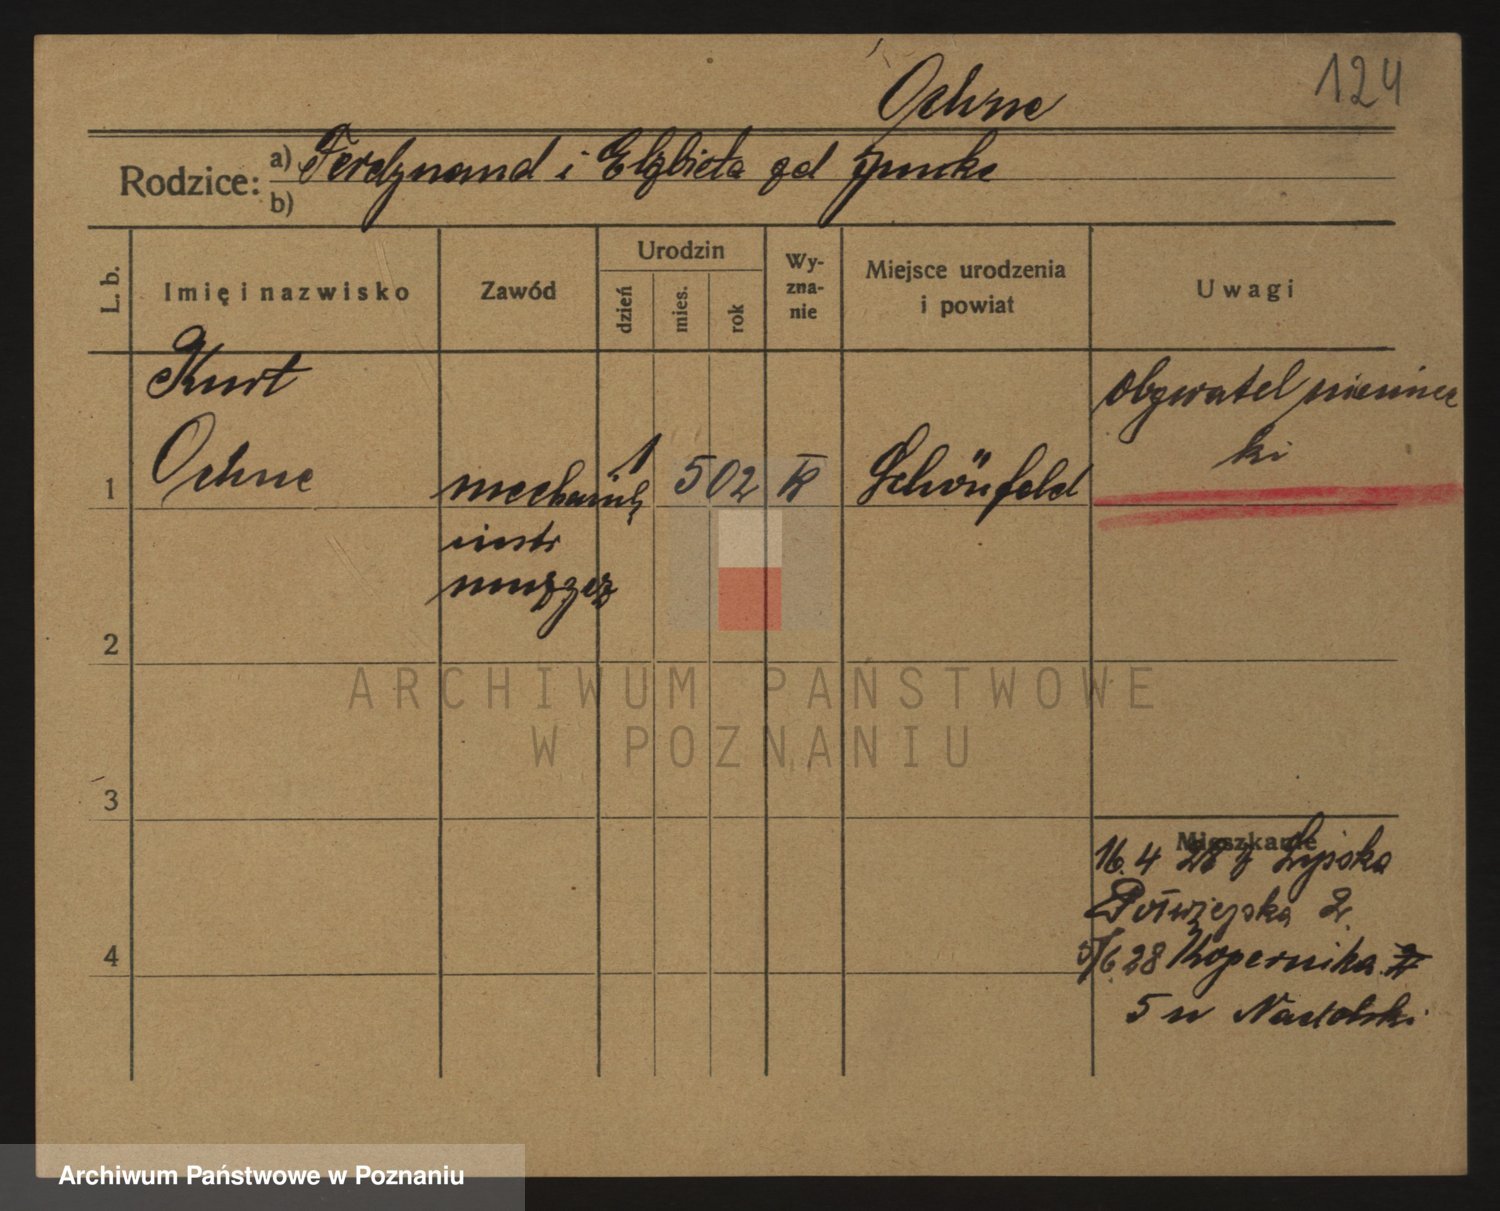 Ochne
124
Rodzice: a) Ferdynand i Elżbieta zd
b)
L. b.
Imię i nazwisko
Zawód
Urodzin
dzień
mies.
rok
Wy-
zna-
nie
Miejsce urodzenia
i powiat
Uwagi
Kurt
Ochne
1
mechanik
instr
muzycz
1 5 02
Schönfeld
obywatel niemiec
ki
2
3
4
Mieszkanie
16. 4 28 z
Półwiejska 2.
5/6 28 Kopernika
5 u Nadolski
ARCHIWUM PAŃSTWOWE
W POZNANIU
Archiwum Państwowe w Poznaniu